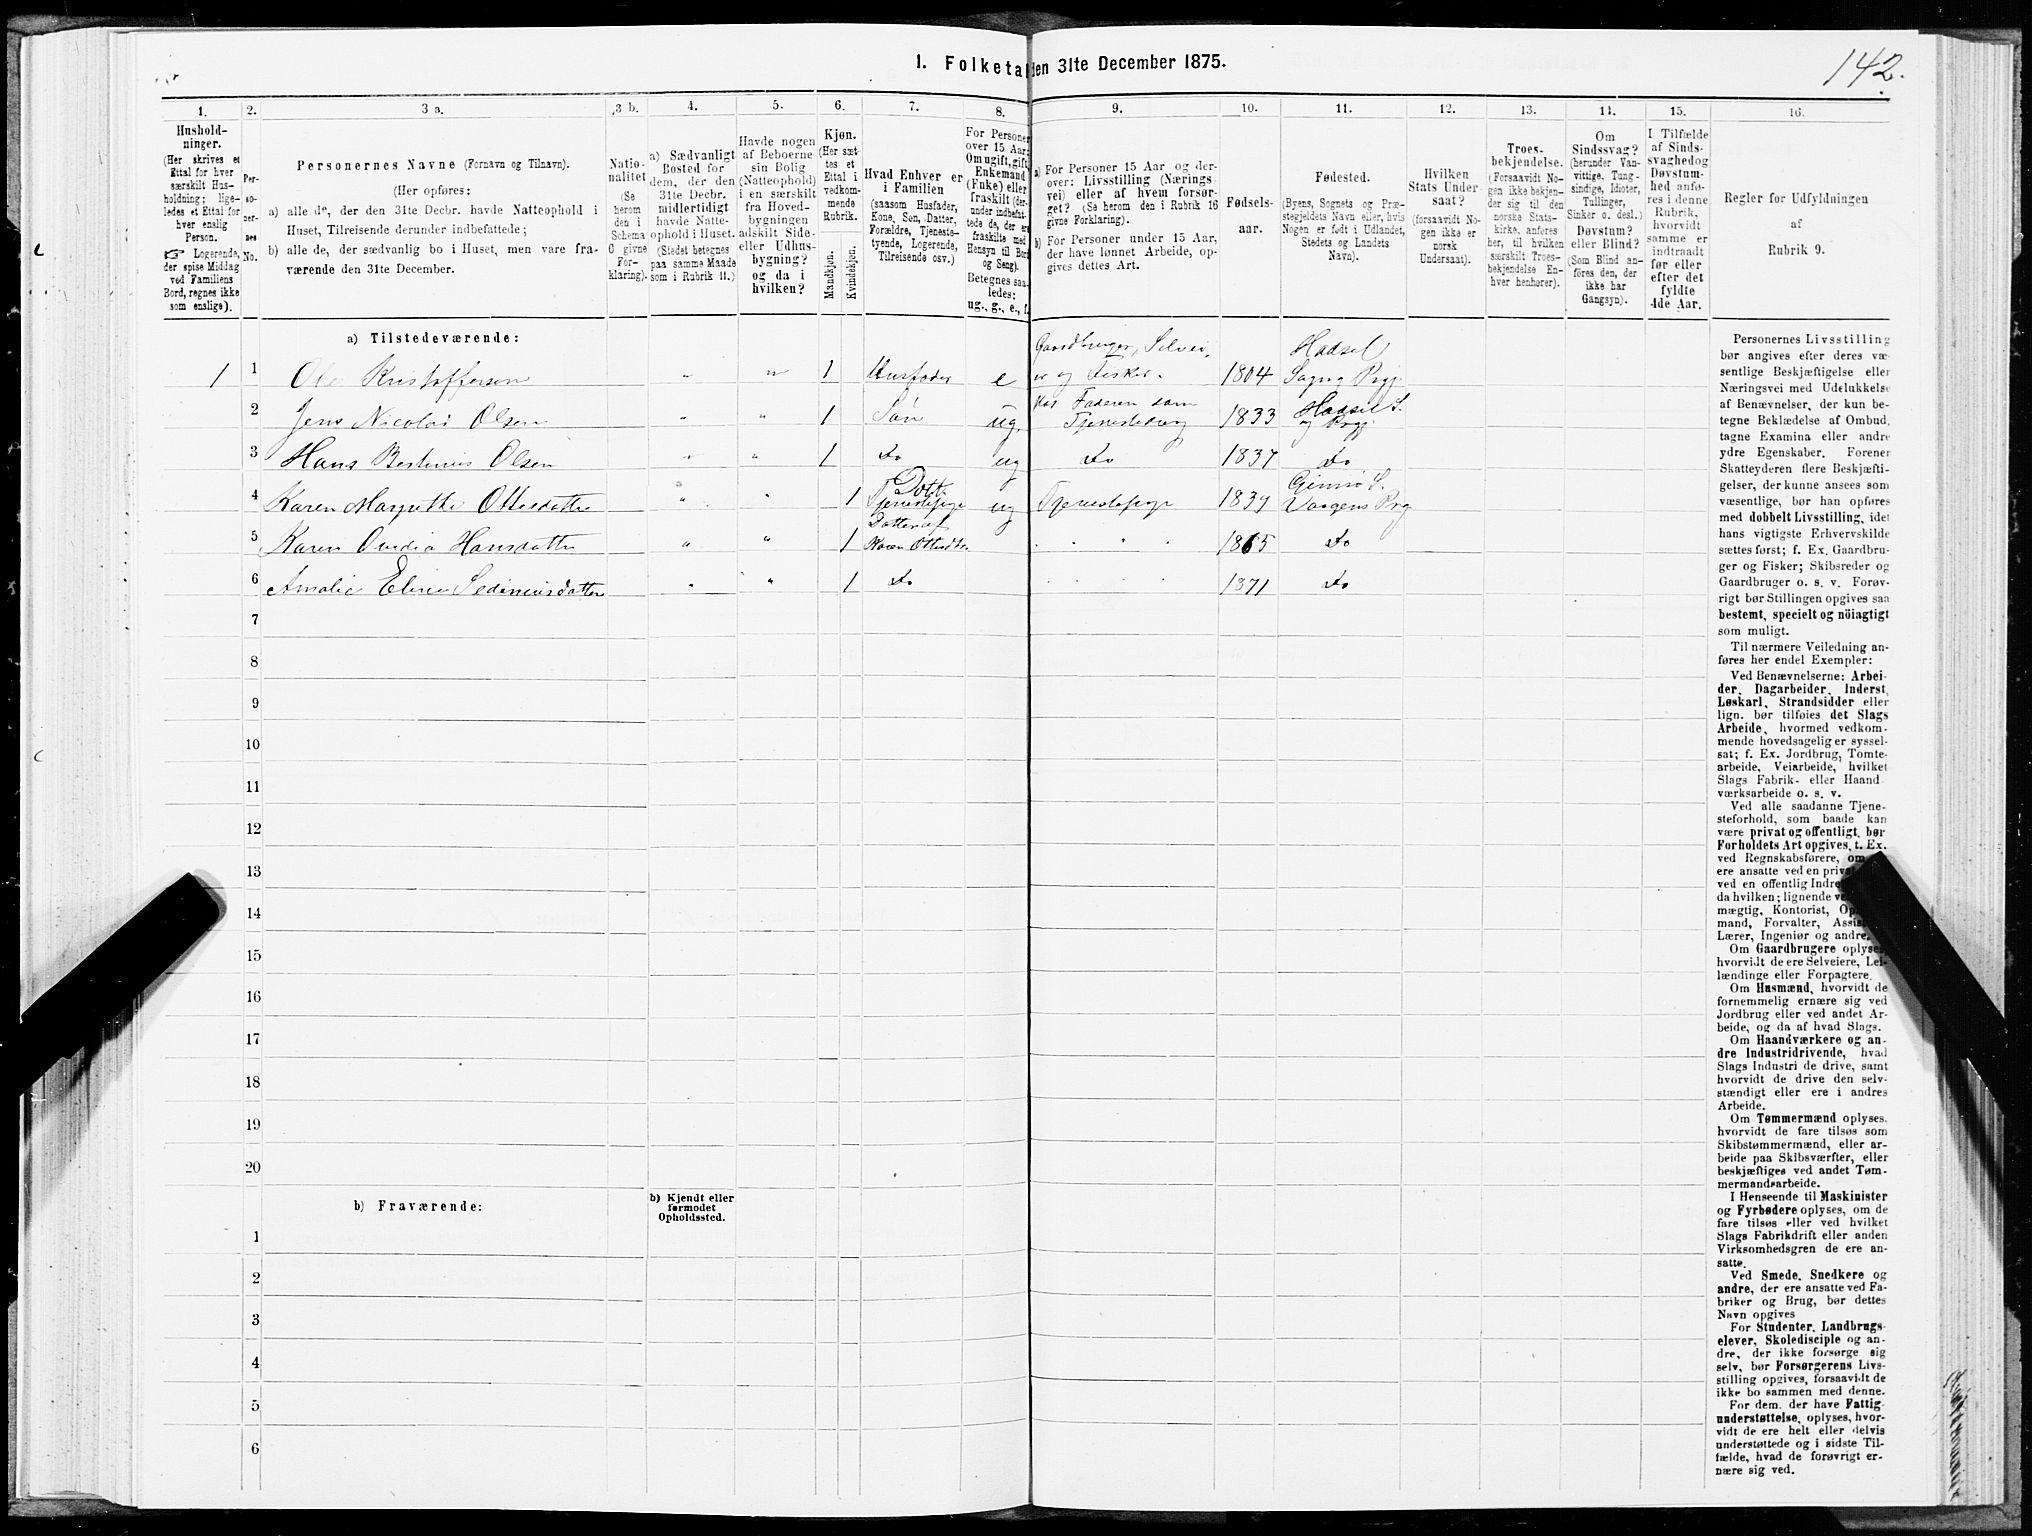 1. Folketal den 31te December 1875.
142.
1.
2.
3 a.
3 b.
4.
5.
6.
7.
8.
9.
10.
11.
12.
13.
14.
15.
16.
Hushold-
ninger.
(Her skrives et
Ettal for hver
særskilt Hus-
holdning; lige-
ledes et Ettal for
hver enslig
Person.
☞ Logerende,
der spise Middag
ved Familiens
Bord, regnes ikke
som enslige).
Per-
so-
ner-
nes
No.
Personernes Navne (Fornavn og Tilnavn).
(Her opføres:
a) alle de, der den 31te Decbr. havde Natteophold i
Huset, Tilreisende derunder indbefattede;
b) alle de, der sædvanlig bo i Huset, men vare fra-
værende den 31te December.
Natio-
nalitet
(Se
herom
den i
Schema
O givne
For-
klaring).
a) Sædvanligt
Bosted for
dem, der den
31te Decbr.
midlertidigt
havde Natte-
ophold i Huset.
(Stedet betegnes
paa samme Maade
som i Rubrik 11.)
Havde nogen
af Beboerne
sin Bolig
(Natteophold)
i en særskilt
fra Hoved-
bygningen
adskilt Side-
eller Udhus-
bygning?
og da i
hvilken?
Kjøn.
(Her sæt-
tes et
Ettal i
vedkom-
mende
Rubrik.
Mandkjøn.
Kvindekjøn.
Hvad Enhver er
i Familien
(saasom Husfader,
Kone, Søn, Datter,
Forældre, Tjeneste-
tyende, Logerende,
Tilreisende osv.)
For Personer
over 15 Aar:
Om ugift, gift,
Enkemand
(Enke) eller
fraskilt (der-
under indbefat-
tede de, der ere
fraskilte med
Hensyn til Bord
og Seng).
Betegnes saa-
ledes:
ug., g., e., f.
a) For Personer 15 Aar og der-
over: Livsstilling (Nærings-
vei) eller af hvem forsør-
get? (Se herom den i Rubrik 16
givne Forklaring).
b) For Personer under 15 Aar,
der have lønnet Arbeide, op-
gives dettes Art.
Fødsels-
aar.
Fødested.
(Byens, Sognets og Præ-
stegjeldets Navn eller, hvis
Nogen er født i Udlandet,
Stedets og Landets
Navn).
Hvilken
Stats Under-
saat?
(forsaavidt No-
gen ikke er
norsk
Undersaat).
Troes-
bekjendelse.
(Forsaavidt No-
gen ikke bekjen-
der sig til den
norske Stats-
kirke, anføres
her, til hvilken
særskilt Troes-
bekjendelse En-
hver henhører).
Om
Sindssvag?
(herunder Van-
vittige, Tung-
sindige, Idioter,
Tullinger,
Sinker o. desl.)
Døvstum?
eller Blind?
(Som Blind an-
føres den, der
ikke har
Gangsyn).
I Tilfælde
af Sinds-
svaghed og
Døvstum-
hed anfø-
res i denne
Rubrik,
hvorvidt
samme er
indtraadt
før eller
efter det
fyldte
4de Aar.
Regler for Udfyldningen
af
Rubrik 9.
a) Tilstedeværende:
Gaardbruger, Selvei,
Hadsel
1 1 Ole Kristoffersen " " 1 Husfader e er og Fisker. 1804 Sogn og Prgj.
2 Jens Nicolai Olsen " " 1 Søn ug. Hos Faderen som Tjenestedreng 1833 Hadsel S. og Prgj.
3 Hans Bertinius Olsen " " 1 Do ug Do 1837 Do
4 Karen Margrethe Ottesdatter " " 1 Dott. Tjenestepige ug Tjenestepige 1839 Gimsø S. Vaagens Prg
5 Karen Ovedia Hansdatter " " 1 Datter af Karen Ottesdtr. 1865 Do
6 Amalie Eline Sedeniusdatter " " 1 Do 1871 Do
7
8
9
10
11
12
13
14
15
16
17
18
19
20
b) Fraværende:
b) Kjendt eller
formodet
Opholdssted.
1
2
3
4
5
6
Personernes Livsstilling
bør angives efter deres væ-
sentlige Beskjæftigelse eller
Næringsvei med Udelukkelse
af Benævnelser, der kun be-
tegne Beklædelse af Ombud,
tagne Examina eller andre
ydre Egenskaber. Forener
Skatteyderen flere Beskjæfti-
gelser, der kunne ansees som
væsentlige, bør han opføres
med dobbelt Livsstilling, idet
hans vigtigste Erhvervskilde
sættes først; f. Ex. Gaardbru-
ger og Fisker; Skibsreder og
Gaardbruger o. s. v. Forøv-
rigt bør Stillingen opgives saa
bestemt, specielt og nöiagtigt
som muligt.
Til nærmere Veiledning an-
føres her endel Exempler:
Ved Benævnelserne: Arbei-
der, Dagarbeider, Inderst,
Løskarl, Strandsidder eller
lign. bør tilføies det Slags
Arbeide, hvormed vedkom-
mende hovedsagelig er syssel-
sat; f. Ex. Jordbrug, Tomte-
arbeide, Veiarbeide, hvilket
Slags Fabrik- eller Haand-
værksarbeide o. s. v.
Ved alle saadanne Tjene-
steforhold, som baade kan
være privat og offentligt, bør
Forholdets Art opgives, t. Ex.
ved Regnskabsførere, om
ere ansatte ved en privat
ved en offentlig Indre
da hvilken; lignende ve
mægtig, Kontorist, Op
mand, Forvalter, Assis
Lærer, Ingeniør og andre.
Om Gaardbrugere oplyses,
hvorvidt de ere Selveiere, Lei-
lændinge eller Forpagtere.
Om Husmænd, hvorvidt de
fornemmelig ernære sig ved
Jordbrug eller ved andet Ar-
beide, og da af hvad Slags.
Om Haandværkere og an-
dre Industridrivende, hvad
Slags Industri de drive, samt
hvorvidt de drive den selv-
stændigt eller ere i andres
Arbeide.
Om Tømmermænd oplyses,
hvorvidt de fare tilsøs som
Skibstømmermænd, eller ar-
beide paa Skibsværfter, eller
beskjæftiges ved andet Tøm-
mermandsarbeide.
I Henseende til Maskinister
og Fyrbødere oplyses, om de
fare tilsøs eller ved hvilket
Slags Fabrikdrift eller anden
Virksomhedsgren de ere an-
satte.
Ved Smede, Snedkere og
andre, der ere ansatte ved Fa-
briker og Brug, bør dettes
Navn opgives
For Studenter, Landbrugs-
elever, Skoledisciple og an-
dre, der ikke forsørge sig
selv, bør Forsørgerens Livs-
stilling opgives, forsaavidt de
ikke bo sammen med denne.
For dem, der have Fattig-
understøttelse, oplyses, hvor-
vidt de ere helt eller delvis
understøttede og i sidste Til-
fælde, hvad de forøvrigt er-
nære sig ved.